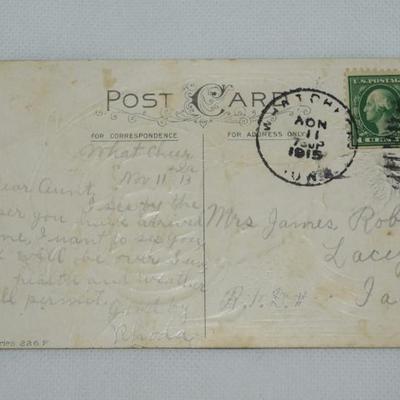 POST CARD
FOR CORRESPONDENCE
FOR ADDRESS ONLY
U.S. POSTAGE
11
1915
What Cheer
Ia
Nov 11 15
Dear Aunt,
I see by the
you have arrived
I want to see you
will be over Sun
health and weather
permit.
Good by
Rhoda
Mrs James Rob
Lacey
R.F.D.#
Ia
Series 226 F